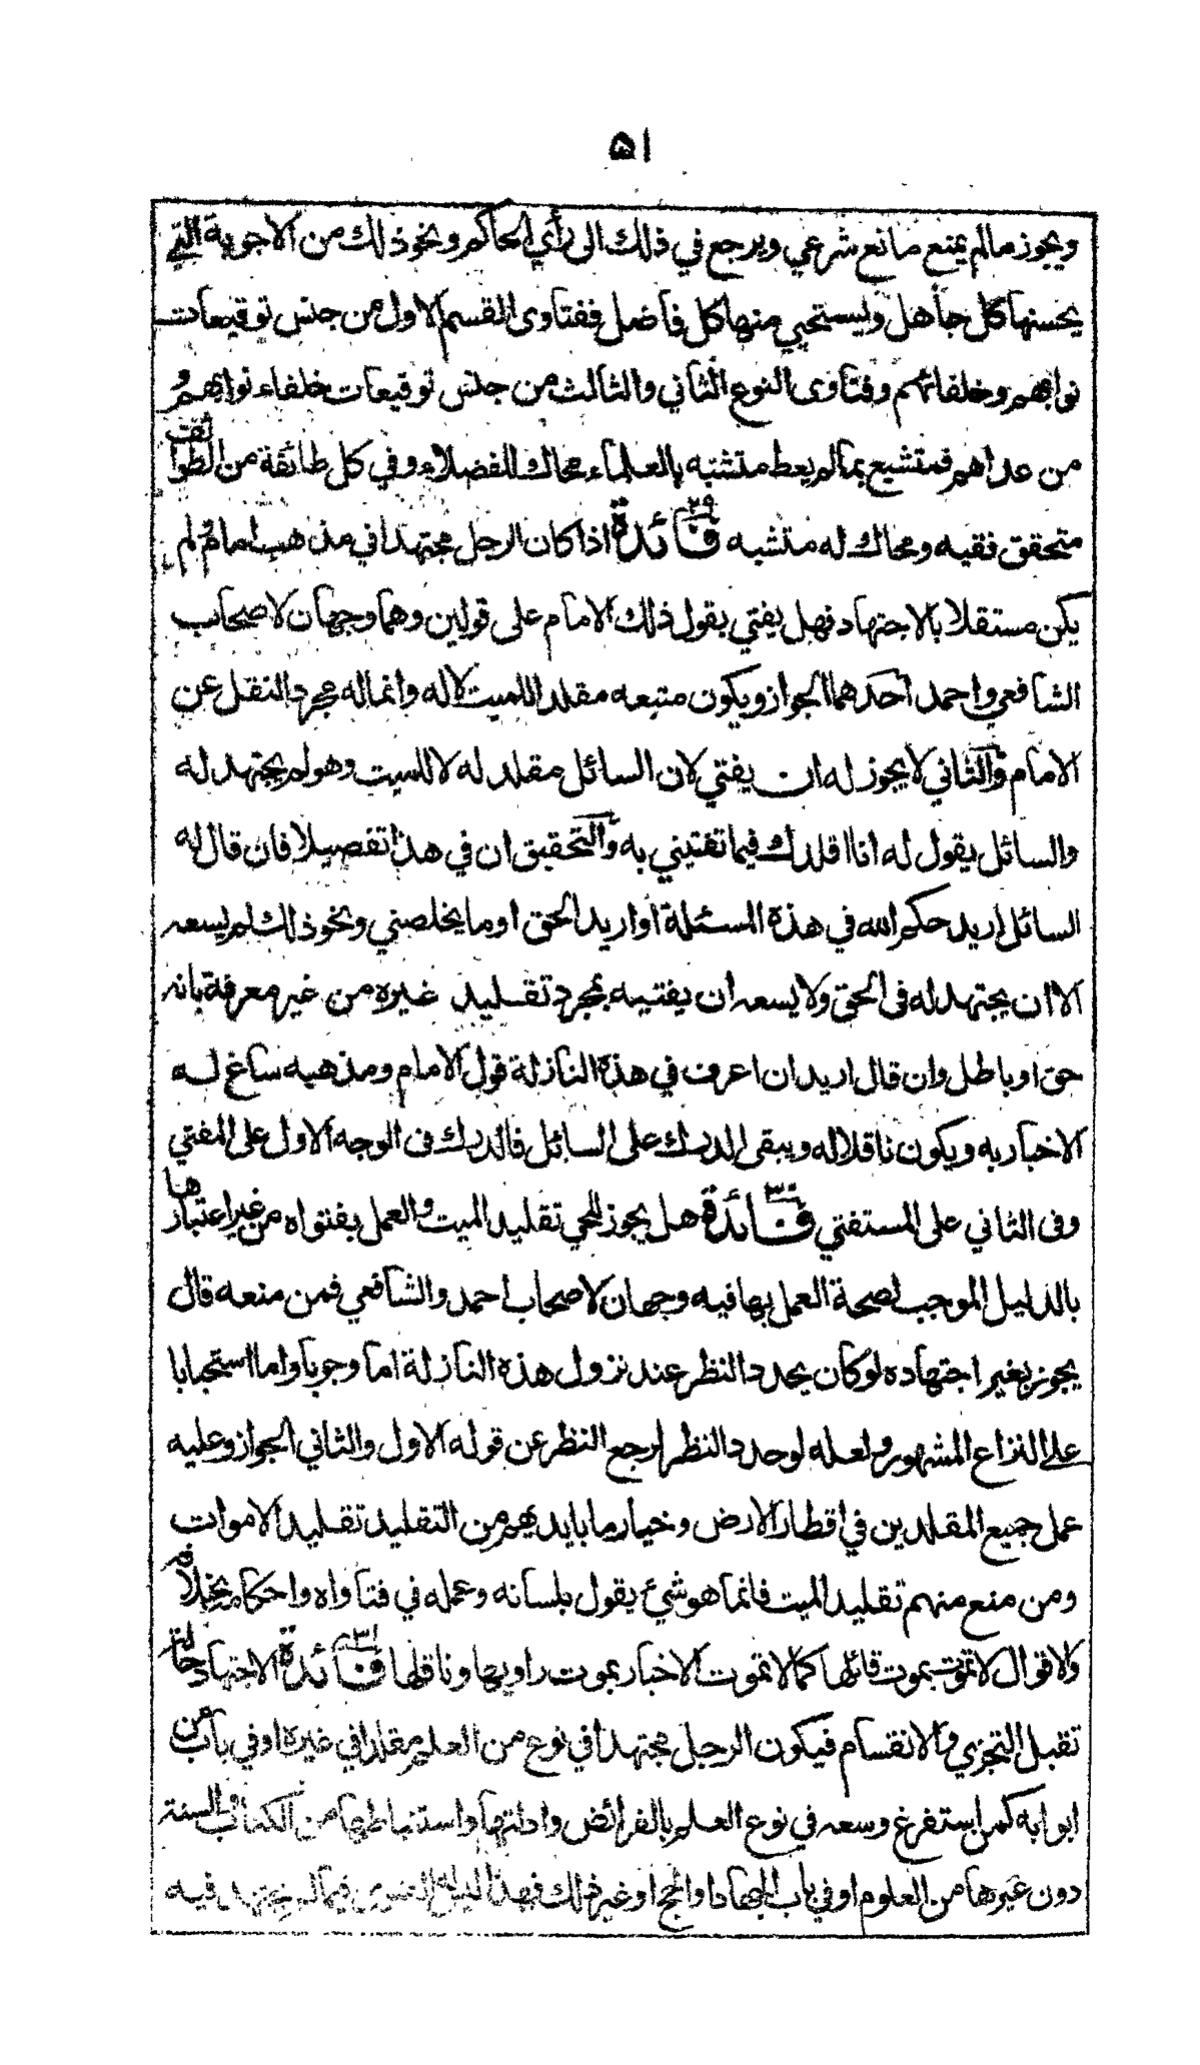 ٥١
ويجوز مالم يمنع مانع شرعي ويرجع في ذلك الى رأي الحاكم ونحو ذلك من الاجوبة التي
يحسنها كل جاهل ويستحيي منها كل فاضل ففتاوى القسم الاول من جنس توقيعات
نوابهم وخلفائهم وفتاوى النوع الثاني والثالث من جنس توقيعات خلفاء نوابهم و
من عداهم فمتشبع بمالم يعط متشبه بالعلماء محاك للفضلاء وفي كل طائفة من الطوائف
متحقق فقيه ومحاك له متشبه فائدة ٢٩ اذا كان الرجل مجتهدا في مذهب امام ولم
يكن مستقلا بالاجتهاد فهل يفتي بقول ذلك الامام على قولين وهما وجهان لاصحاب
الشافعي واحمد احدهما الجواز ويكون متبعه مقلدا للميت لا له وانما له مجرد النقل عن
الامام والثاني لا يجوز له ان يفتي لان السائل مقلد له لا للميت وهو لم يجتهد له
والسائل يقول له انا اقلدك فيما تفتيني به والتحقيق ان في هذا تفصيلا فان قال له
السائل اريد حكم الله في هذه المسئلة او اريد الحق او ما يخلصني ونحو ذلك لم يسعه
الا ان يجتهد له في الحق ولا يسعه ان يفتيه بمجرد تقليد غيره من غير معرفة بانه
حق او باطل وان قال اريد ان اعرف في هذه النازلة قول الامام ومذهبه ساغ له
الاخبار به ويكون ناقلا له ويبقى الدرك على السائل فالدرك في الوجه الاول على المفتي
وفي الثاني على المستفتي فائدة ٣٠ هل يجوز للحي تقليد الميت والعمل بفتواه من غير اعتبارها
بالدليل الموجب لصحة العمل بها فيه وجهان لاصحاب احمد والشافعي فمن منعه قال
يجوز بغير اجتهاده لو كان يجدد النظر عند نزول هذه النازلة اما وجوبا واما استحبابا
على النزاع المشهور ولعله لو جدد النظر لرجع النظر عن قوله الاول والثاني الجواز وعليه
عمل جميع المقلدين في اقطار الارض وخيار ما بايديهم من التقليد تقليد الاموات
ومن منع منهم تقليد الميت فانما هو شيئ يقول بلسانه وعمله في فتاواه واحكامه بخلافه
ولاقوال لا تموت بموت قائلها كما لا تموت الاخبار بموت راويها وناقلها فائدة ٣١ الاجتهاد حالة
تقبل التجزي والانقسام فيكون الرجل مجتهدا في نوع من العلم مقلدا في غيره او في باب من
ابوابه كمن استفرغ وسعه في نوع العلم بالفرائض وادلتها واستنباطها من الكتاب والسنة
دون غيرها من العلوم او في باب الجهاد او الحج او غير ذلك فهذا ليس له الفتوى فيما لم يجتهد فيه